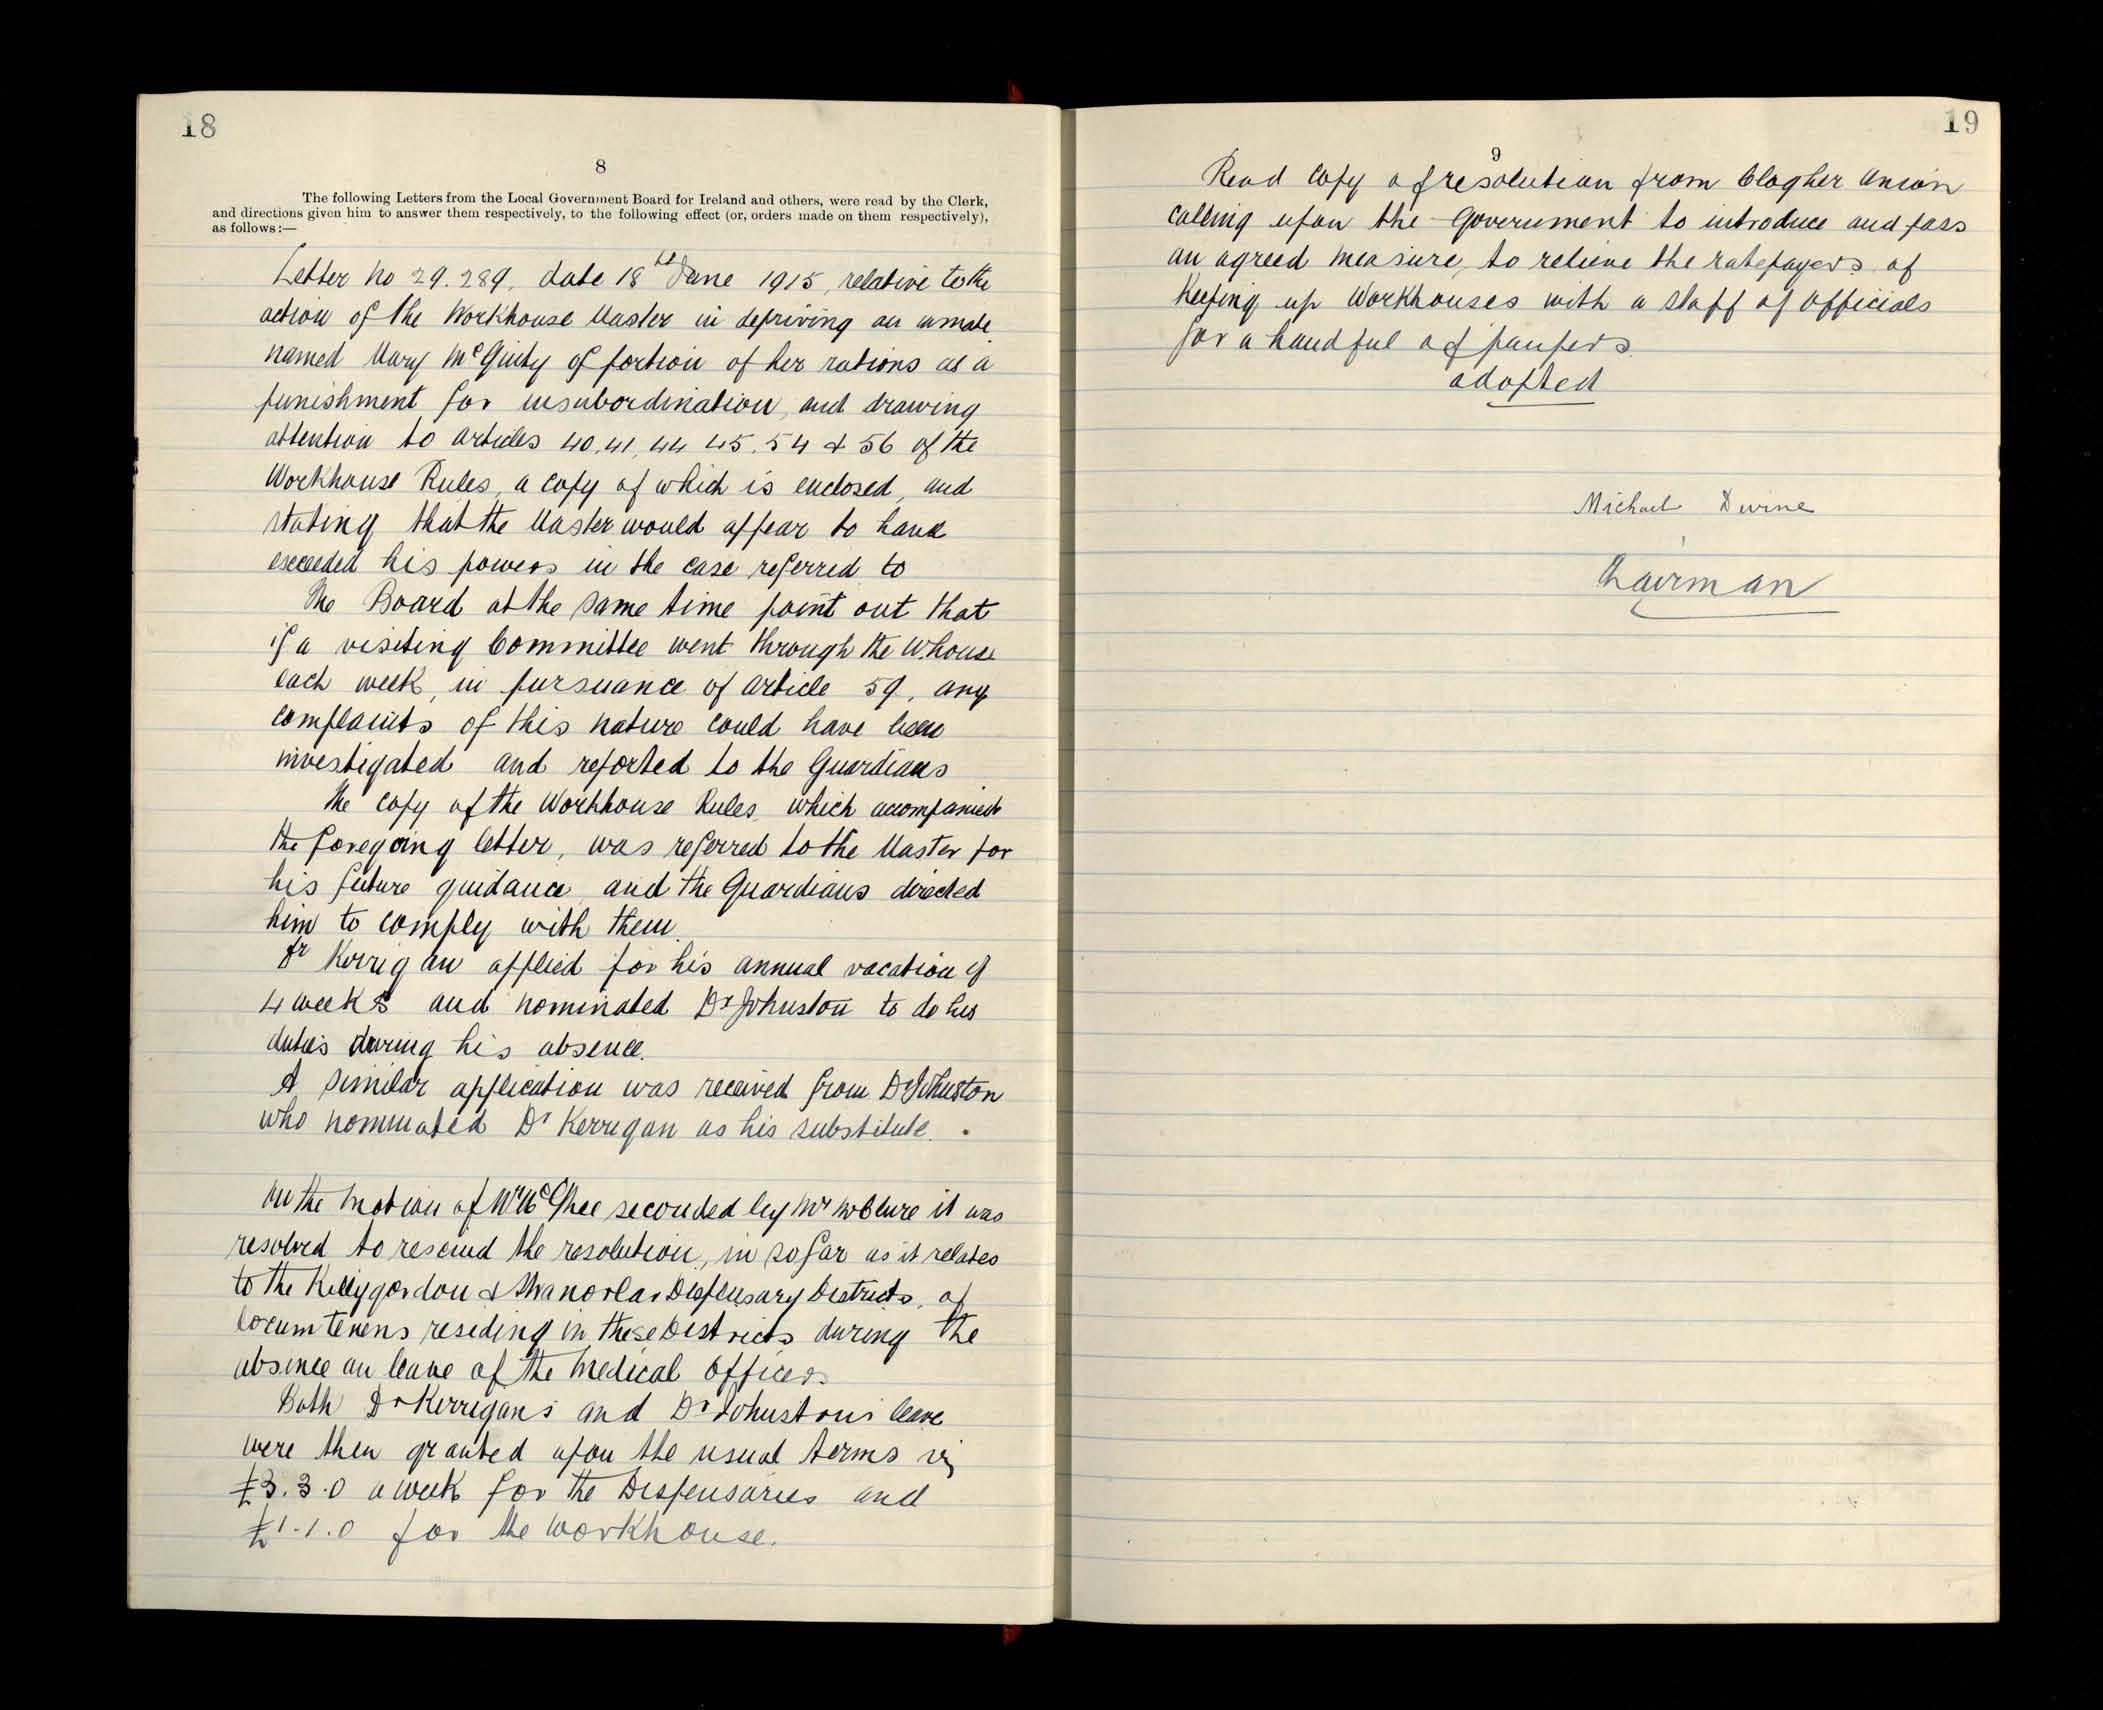 18
8
The following Letters from the Local Government Board for Ireland and others, were read by the Clerk,
and directions given him to answer them respectively, to the following effect (or, orders made on them respectively),
as follows:—
Letter No 29.289, date 18th June 1915, relative to the
action of the Workhouse Master in depriving an inmate
named Mary McGinty of portion of her rations as a
punishment for insubordination, and drawing
attention to Articles 40.41.44 45.54 & 56 of the
Workhouse Rules, a copy of which is enclosed, and
stating that the Master would appear to have
exceeded his powers in the case referred to
The Board at the same time point out that
if a visiting Committee went through the W.house
each week, in pursuance of Article 59, any
complaints of this nature could have been
investigated and reported to the Guardians
The copy of the Workhouse Rules, which accompanied
the foregoing letter, was referred to the Master for
his future guidance and the Guardians directed
him to comply with them.
Dr Kerrigan applied for his annual vacation of
4 weeks and nominated Dr Johnston to do his
duties during his absence.
A similar application was received from Dr Johnston
who nominated Dr Kerrigan as his substitute.
On the motion of Mr McGhee seconded by Mr McClure it was
resolved to rescind the resolution, in so far as it relates
to the Killygordon & Stranorlar Dispensary Districts, of
locum tenens residing in these Districts during the
absence on leave of the Medical Officers.
Both Dr Kerrigan's and Dr Johnston's leave
were then granted upon the usual terms viz
£3.3.0 a week for the Dispensaries and
£1.1.0 for the Workhouse.
19
9
Read copy of resolution from Clogher Union
calling upon the Government to introduce and pass
an agreed measure, to relieve the ratepayers of
Keeping up Workhouses with a staff of officials
for a handful of paupers.
adopted
Michael Devine
Chairman